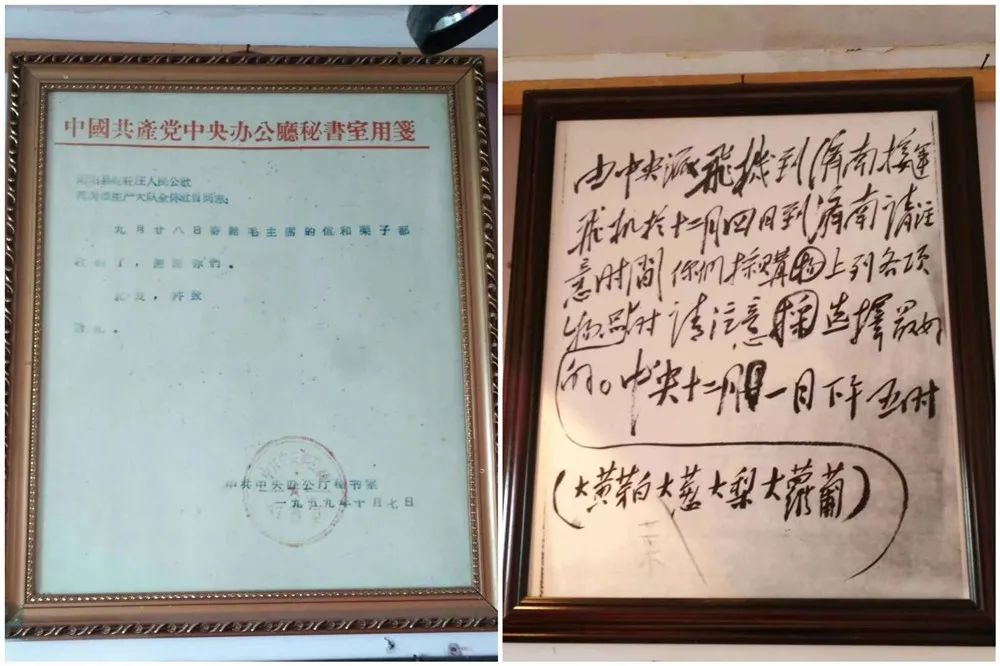 中國共產党中央办公廳秘書室用箋
人民公社
生产大队全体社員同志:
九月廿八日寄給毛主席的信和栗子都
收到了,謝謝你們。
此复,并致
敬礼。
中共中央办公厅秘书室
一九五九年十月七日
由中央派飛機到濟南接運
飛机於十二月四日到濟南請注
意时間你們採購物上列各項
物品时請注意採选擇最好
的。中央十二月一日下午五时
(大黄芽白大葱大梨大蘿蔔)
菜